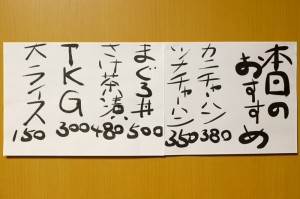 本日の
おすすめ
カニチャーハン
380
ツナチャーハン
350
まぐろ丼
500
さけ茶漬
480
TKG
300
大ライス
150